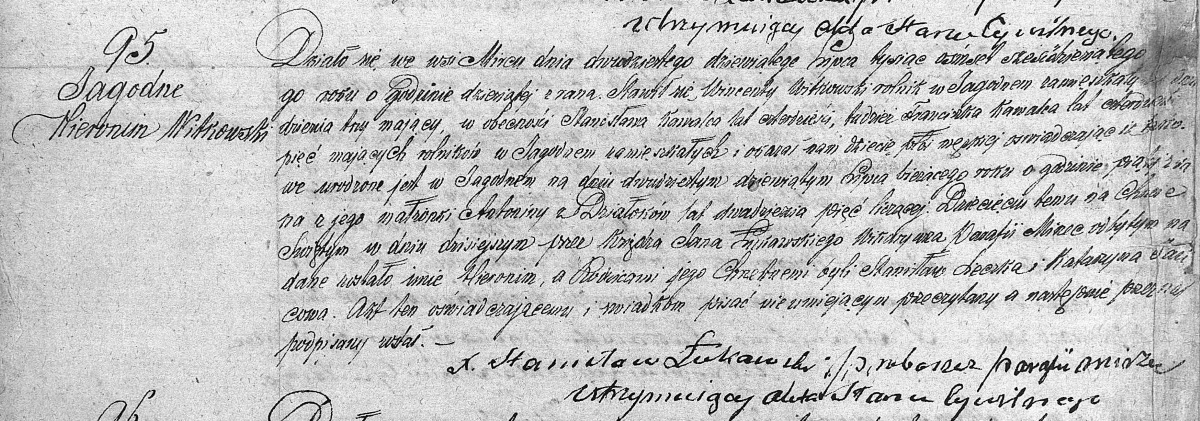 utrzymuiący Akta Stanu Cywilnego.
95
Jagodne
Hieronim Witkowski
Działo się we wsi Mircu dnia dwudziestego dziewiątego Lipca tysiąc ośmset sześdziesiątego
go roku o godzinie dziewiątej z rana. Stawił się Wincenty Witkowski rolnik w Jagodnem zamięszkały lat
dzieścia trzy mający, w obecności Stanisława Kamalca lat czterdzieści, tudzież Franciszka Kamalca lat czterdzieści
pięć mających rolników w Jagodnem zamieszkałych i okazał nam dziecię płci męskiej oświadczając iż
we urodzone jest w Jagodnem na dniu dwudziestym dziewiątym Lipca bieżącego roku o godzinie piątej z ra
na z jego małżonki Antoniny z Działoków lat dwadzieścia pięć liczącej. Dziecięciu temu na Chrzcie
Świętym w dniu dzisiejszym przez Księdza Jana Wikaryusza Parafii Mirzec odbytym na
dane zostało imie Hieronim, a Rodzicami jego Chrzestnemi byli Stanisław Łeczka i Katarzyna
cowa. Akt ten oświadczającemu i świadkom pisać nieumiejącym przeczytany a następnie przez nas
podpisany został. —
X. Stanisław Łukawski proboszcz parafii mirzec
utrzymuiący akta Stanu Cywilnego
96